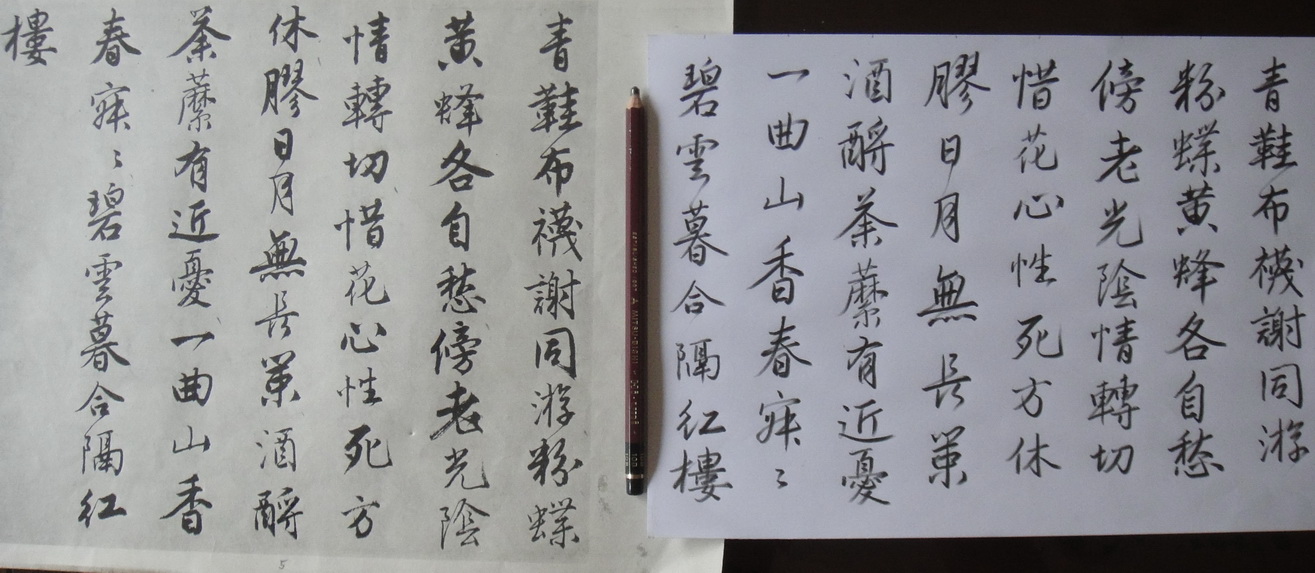 青鞋布襪謝同游
粉蝶黄蜂各自愁
傍老光陰情轉切
惜花心性死方休
膠日月無長策
酒酹荼蘼有近憂
一曲山香春寂〻
碧雲暮合隔紅樓
青鞋布襪謝同游粉蝶
黄蜂各自愁傍老光陰
情轉切惜花心性死方
休膠日月無長策酒酹
荼蘼有近憂一曲山香
春寂〻碧雲暮合隔紅
樓
5